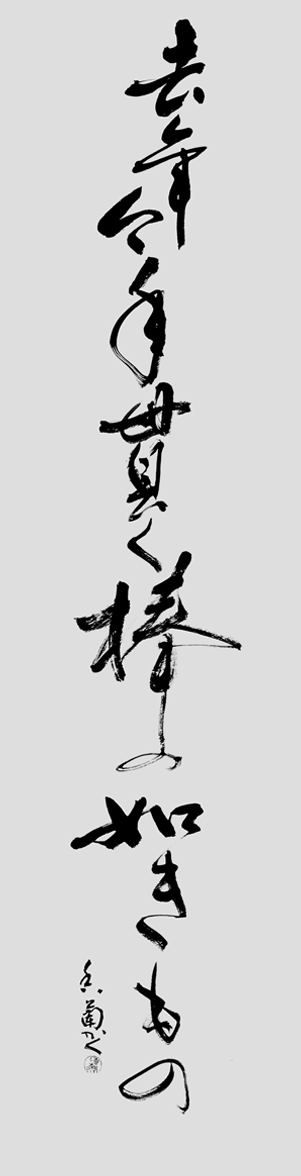 去年今年貫く棒の如きもの